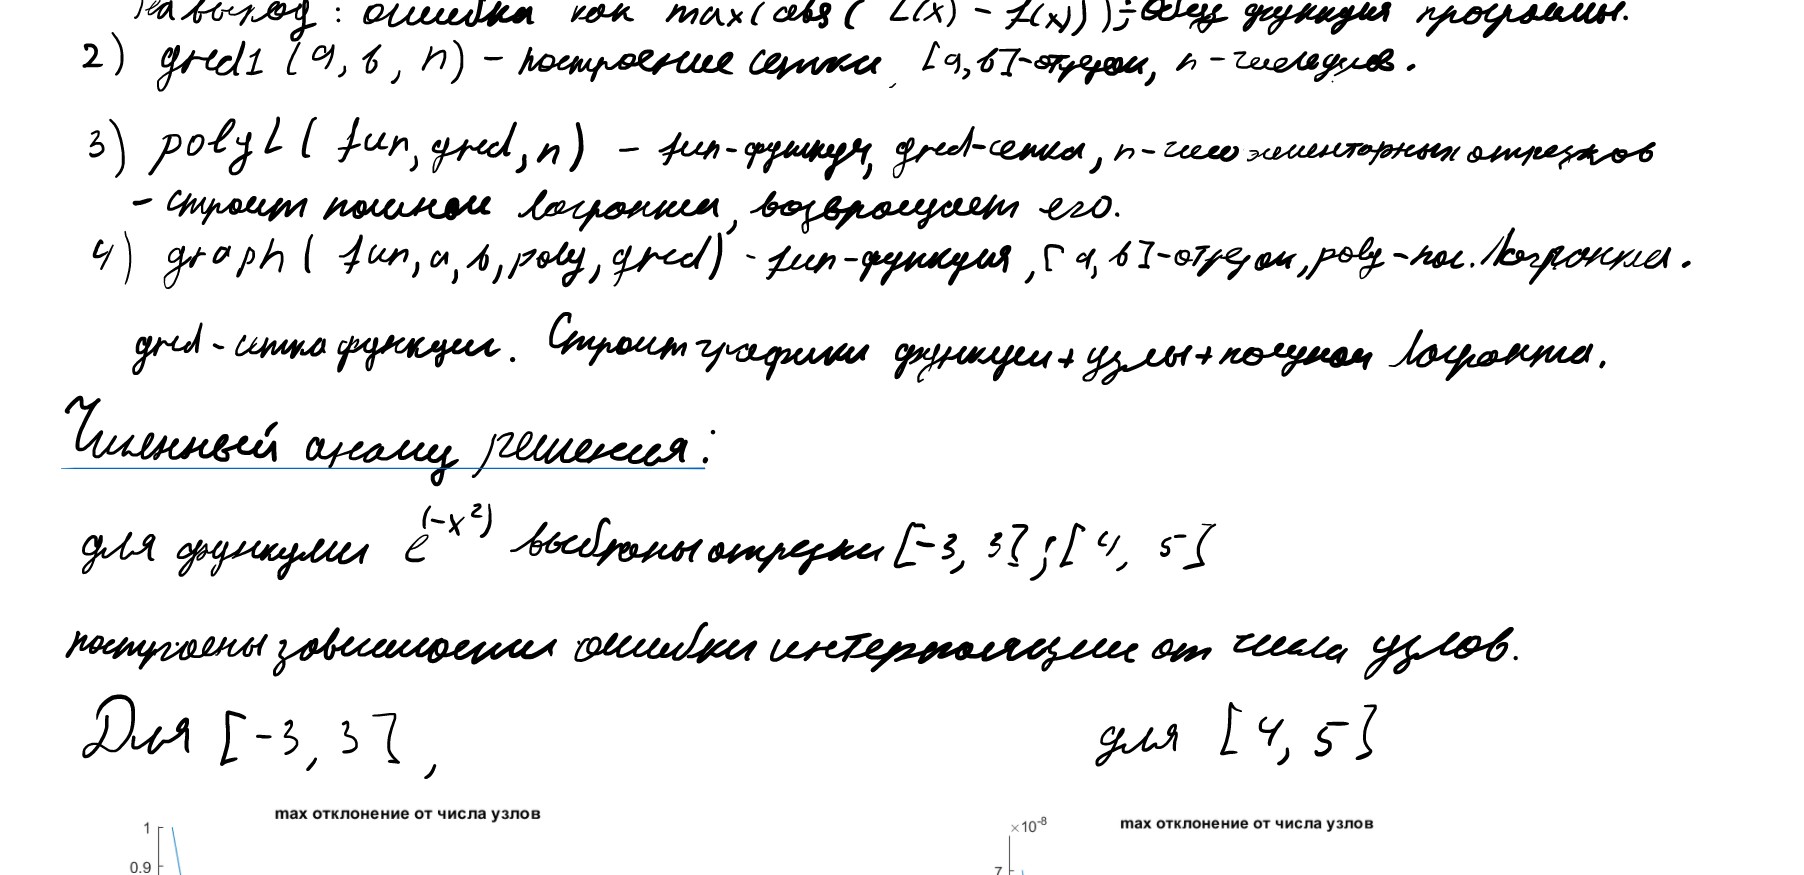 На выход: ошибка как max(abs(L(x) - f(x))); общая функция программы.
2) gred1 (a, b, n) - построение сетки, [a, b]-отрезок, n - число узлов.
3) polyL (fun, gred, n) - fun-функция, gred-сетка, n-число элементарных отрезков
- строит полином Лагранжа, возвращает его.
4) graph (fun, a, b, poly, gred) - fun-функция, [a, b]-отрезок, poly-пол. Лагранжа.
gred-сетка функции. Строит графики функции + узлы + полином Лагранжа.
Численный анализ решения:
для функции e^(-x^2) выбраны отрезки [-3, 3]; [4, 5]
построены зависимости ошибки интерполяции от числа узлов.
Для [-3, 3], для [4, 5]
max отклонение от числа узлов max отклонение от числа узлов
1 ×10^-8
0.9 7